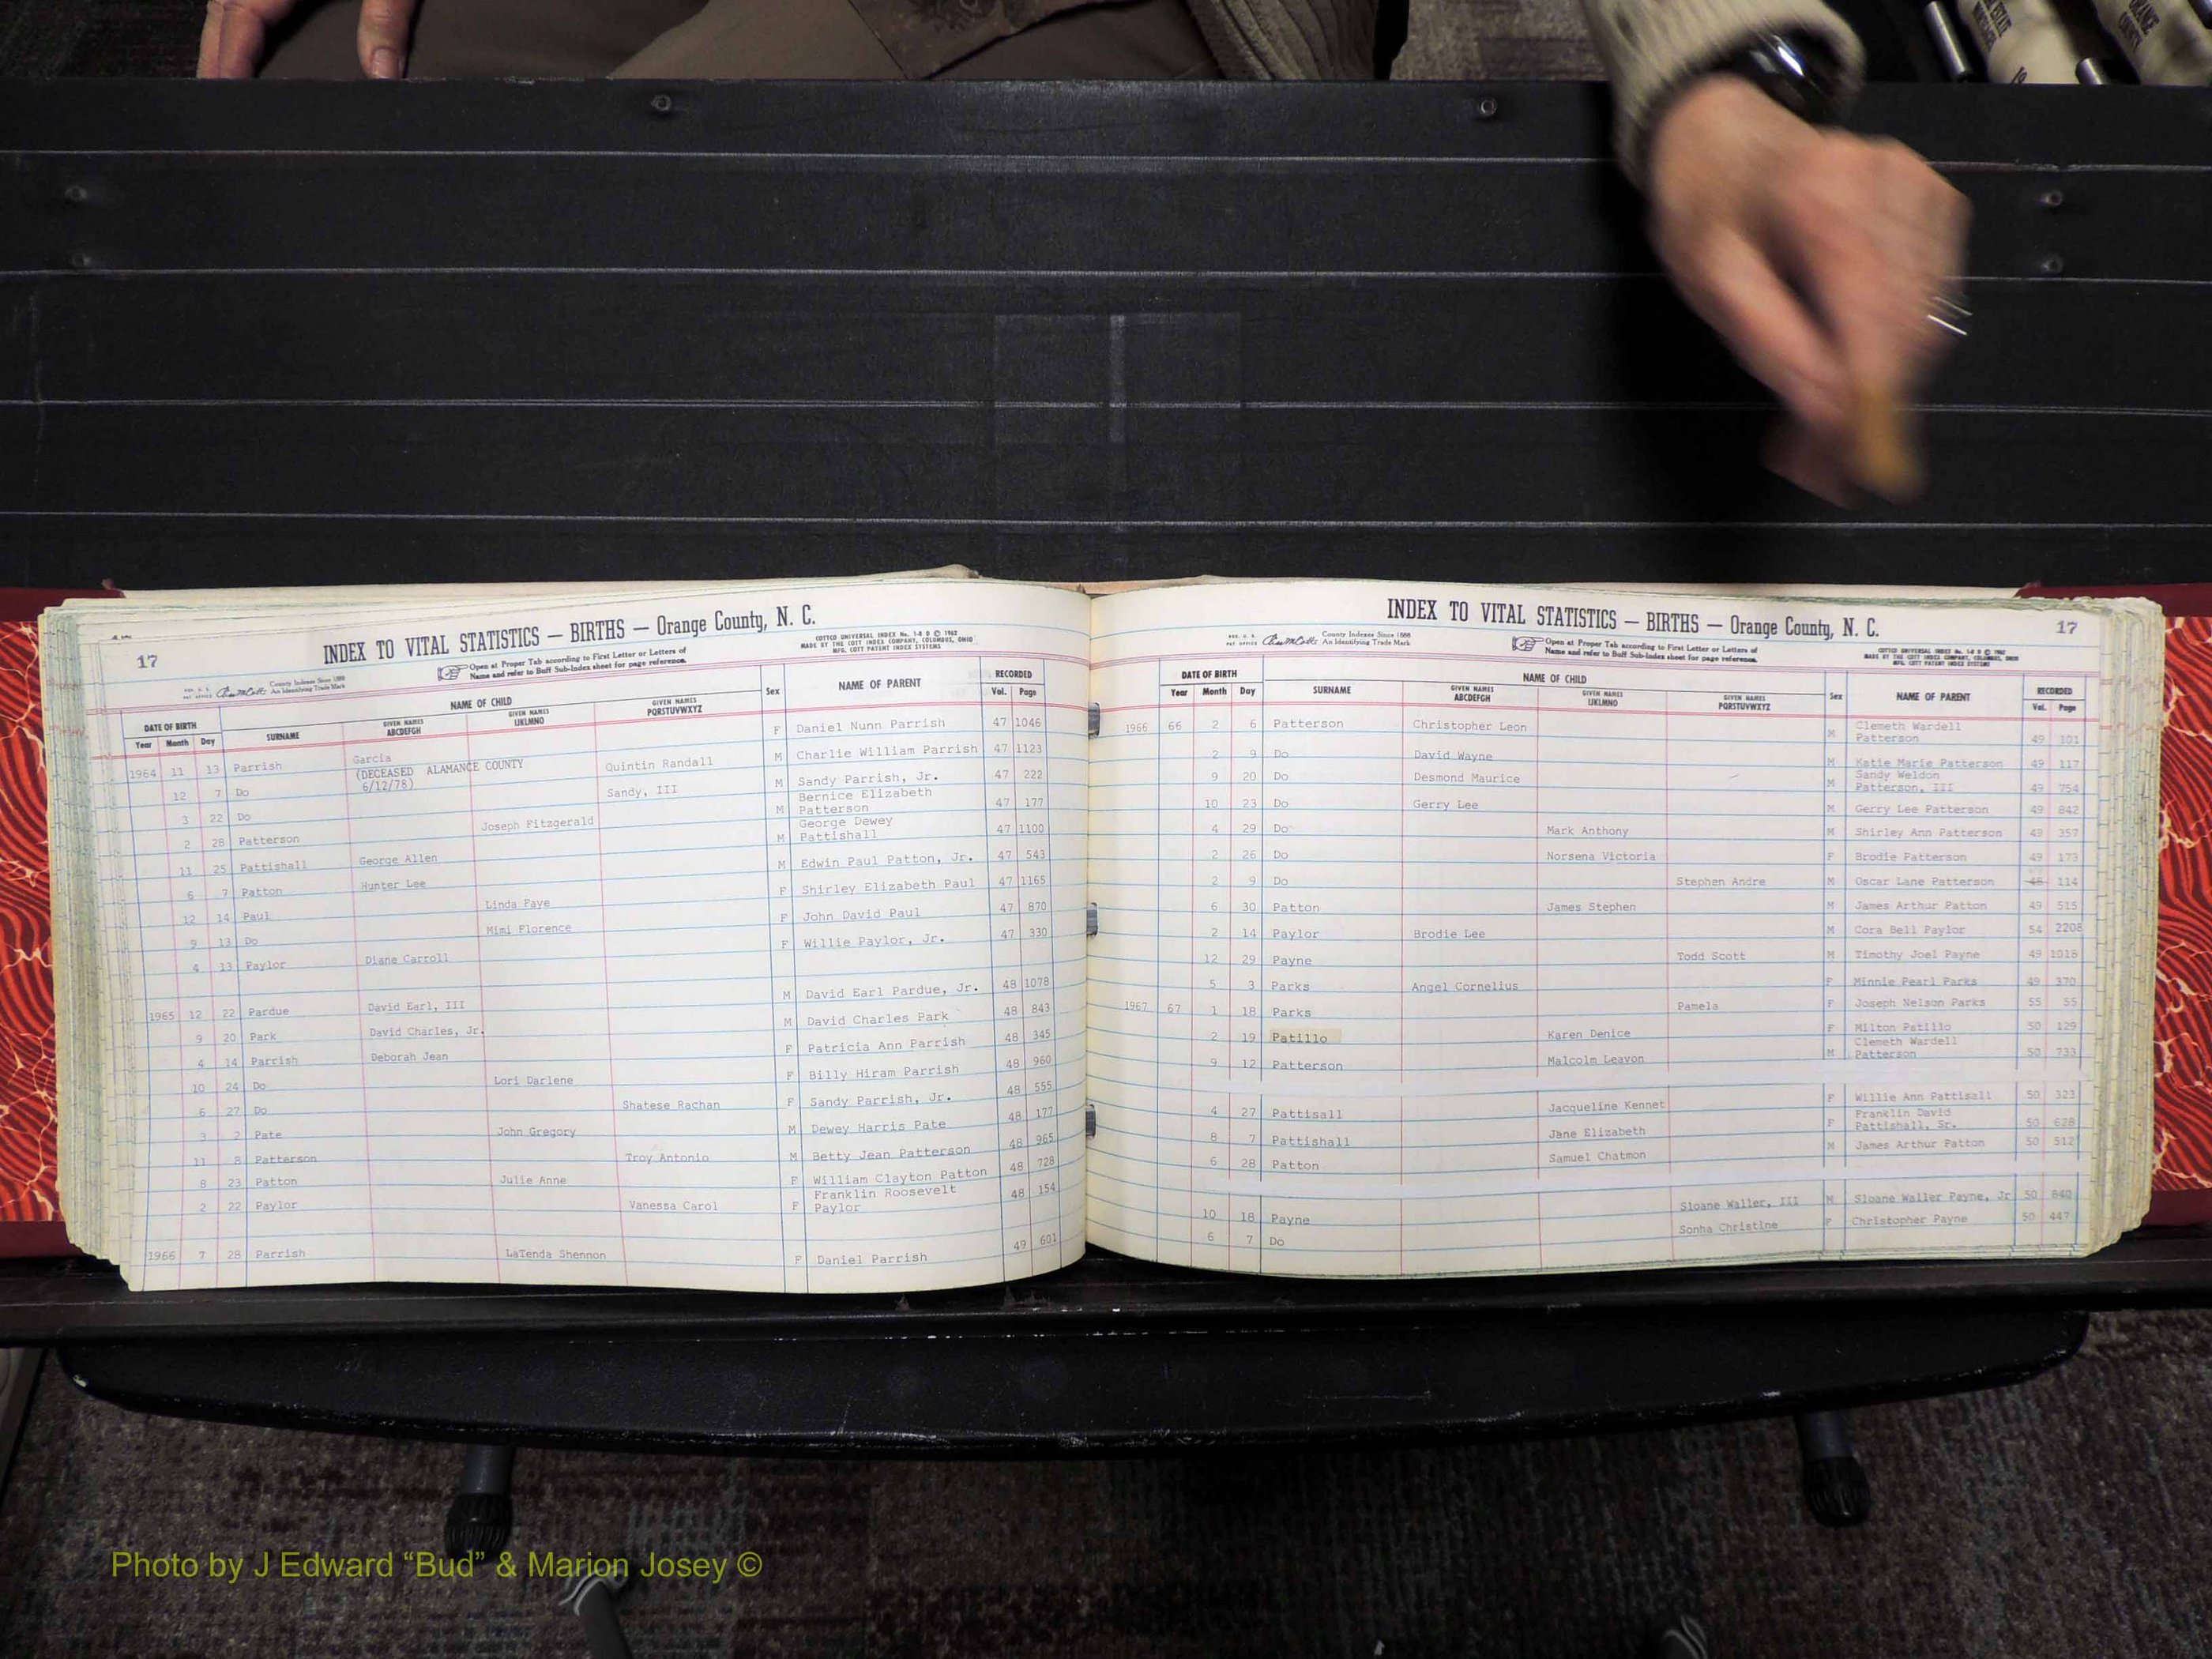 17
INDEX TO VITAL STATISTICS — BIRTHS — Orange County, N. C.
COTTCO UNIVERSAL INDEX No. 1-8 D © 1962
MADE BY THE COTT INDEX COMPANY, COLUMBUS, OHIO
MFG. COTT PATENT INDEX SYSTEMS
County Indexes Since 1888
An Identifying Trade Mark
Open at Proper Tab according to First Letter or Letters of
Name and refer to Buff Sub-Index sheet for page reference.
DATE OF BIRTH NAME OF CHILD Sex NAME OF PARENT RECORDED
Year Month Day SURNAME GIVEN NAMES ABCDEFGH GIVEN NAMES IJKLMNO GIVEN NAMES PQRSTUVWXYZ Vol. Page
1964 11 13 Parrish Garcia F Daniel Nunn Parrish 47 1046
(DECEASED ALAMANCE COUNTY
6/12/78)
12 7 Do Quintin Randall M Charlie William Parrish 47 1123
3 22 Do Sandy, III M Sandy Parrish, Jr. 47 222
2 28 Patterson Joseph Fitzgerald M Bernice Elizabeth Patterson 47 177
11 25 Pattishall George Allen M George Dewey Pattishall 47 1100
6 7 Patton Hunter Lee M Edwin Paul Patton, Jr. 47 543
12 14 Paul Linda Faye F Shirley Elizabeth Paul 47 1165
9 13 Do Mimi Florence F John David Paul 47 870
4 13 Paylor Diane Carroll F Willie Paylor, Jr. 47 330
1965 12 22 Pardue David Earl, III M David Earl Pardue, Jr. 48 1078
9 20 Park David Charles, Jr. M David Charles Park 48 843
4 14 Parrish Deborah Jean F Patricia Ann Parrish 48 345
10 24 Do Lori Darlene F Billy Hiram Parrish 48 960
6 27 Do Shatese Rachan F Sandy Parrish, Jr. 48 555
3 2 Pate John Gregory M Dewey Harris Pate 48 177
11 8 Patterson Troy Antonio M Betty Jean Patterson 48 965
8 23 Patton Julie Anne F William Clayton Patton 48 728
2 22 Paylor Vanessa Carol F Franklin Roosevelt Paylor 48 154
1966 7 28 Parrish LaTenda Shennon F Daniel Parrish 49 601
INDEX TO VITAL STATISTICS — BIRTHS — Orange County, N. C.
17
County Indexes Since 1888
An Identifying Trade Mark
Open at Proper Tab according to First Letter or Letters of
Name and refer to Buff Sub-Index sheet for page reference.
COTTCO UNIVERSAL INDEX No. 1-8 D © 1962
MADE BY THE COTT INDEX COMPANY, COLUMBUS, OHIO
MFG. COTT PATENT INDEX SYSTEMS
DATE OF BIRTH NAME OF CHILD Sex NAME OF PARENT RECORDED
Year Month Day SURNAME GIVEN NAMES ABCDEFGH GIVEN NAMES IJKLMNO GIVEN NAMES PQRSTUVWXYZ Vol. Page
1966 66 2 6 Patterson Christopher Leon M Clemeth Wardell Patterson 49 101
2 9 Do David Wayne M Katie Marie Patterson 49 117
9 20 Do Desmond Maurice M Sandy Weldon Patterson, III 49 754
10 23 Do Gerry Lee M Gerry Lee Patterson 49 842
4 29 Do Mark Anthony M Shirley Ann Patterson 49 357
2 26 Do Norsena Victoria F Brodie Patterson 49 173
2 9 Do Stephen Andre M Oscar Lane Patterson 48 114
6 30 Patton James Stephen M James Arthur Patton 49 515
2 14 Paylor Brodie Lee M Cora Bell Paylor 54 2208
12 29 Payne Todd Scott M Timothy Joel Payne 49 1018
5 3 Parks Angel Cornelius F Minnie Pearl Parks 49 370
1967 67 1 18 Parks Pamela F Joseph Nelson Parks 55 55
2 19 Patillo Karen Denice F Milton Patillo 50 129
9 12 Patterson Malcolm Leavon M Clemeth Wardell Patterson 50 733
4 27 Pattisall Jacqueline Kennet F Willie Ann Pattisall 50 323
8 7 Pattishall Jane Elizabeth F Franklin David Pattishall, Sr. 50 628
6 28 Patton Samuel Chatmon M James Arthur Patton 50 512
10 18 Payne Sloane Waller, III M Sloane Waller Payne, Jr 50 840
6 7 Do Sonha Christine F Christopher Payne 50 447
Photo by J Edward “Bud” & Marion Josey ©